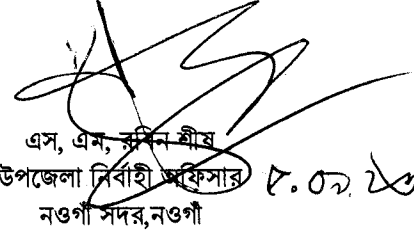 এস, এম, রবিন শীষ
উপজেলা নির্বাহী অফিসার
নওগাঁ সদর,নওগাঁ